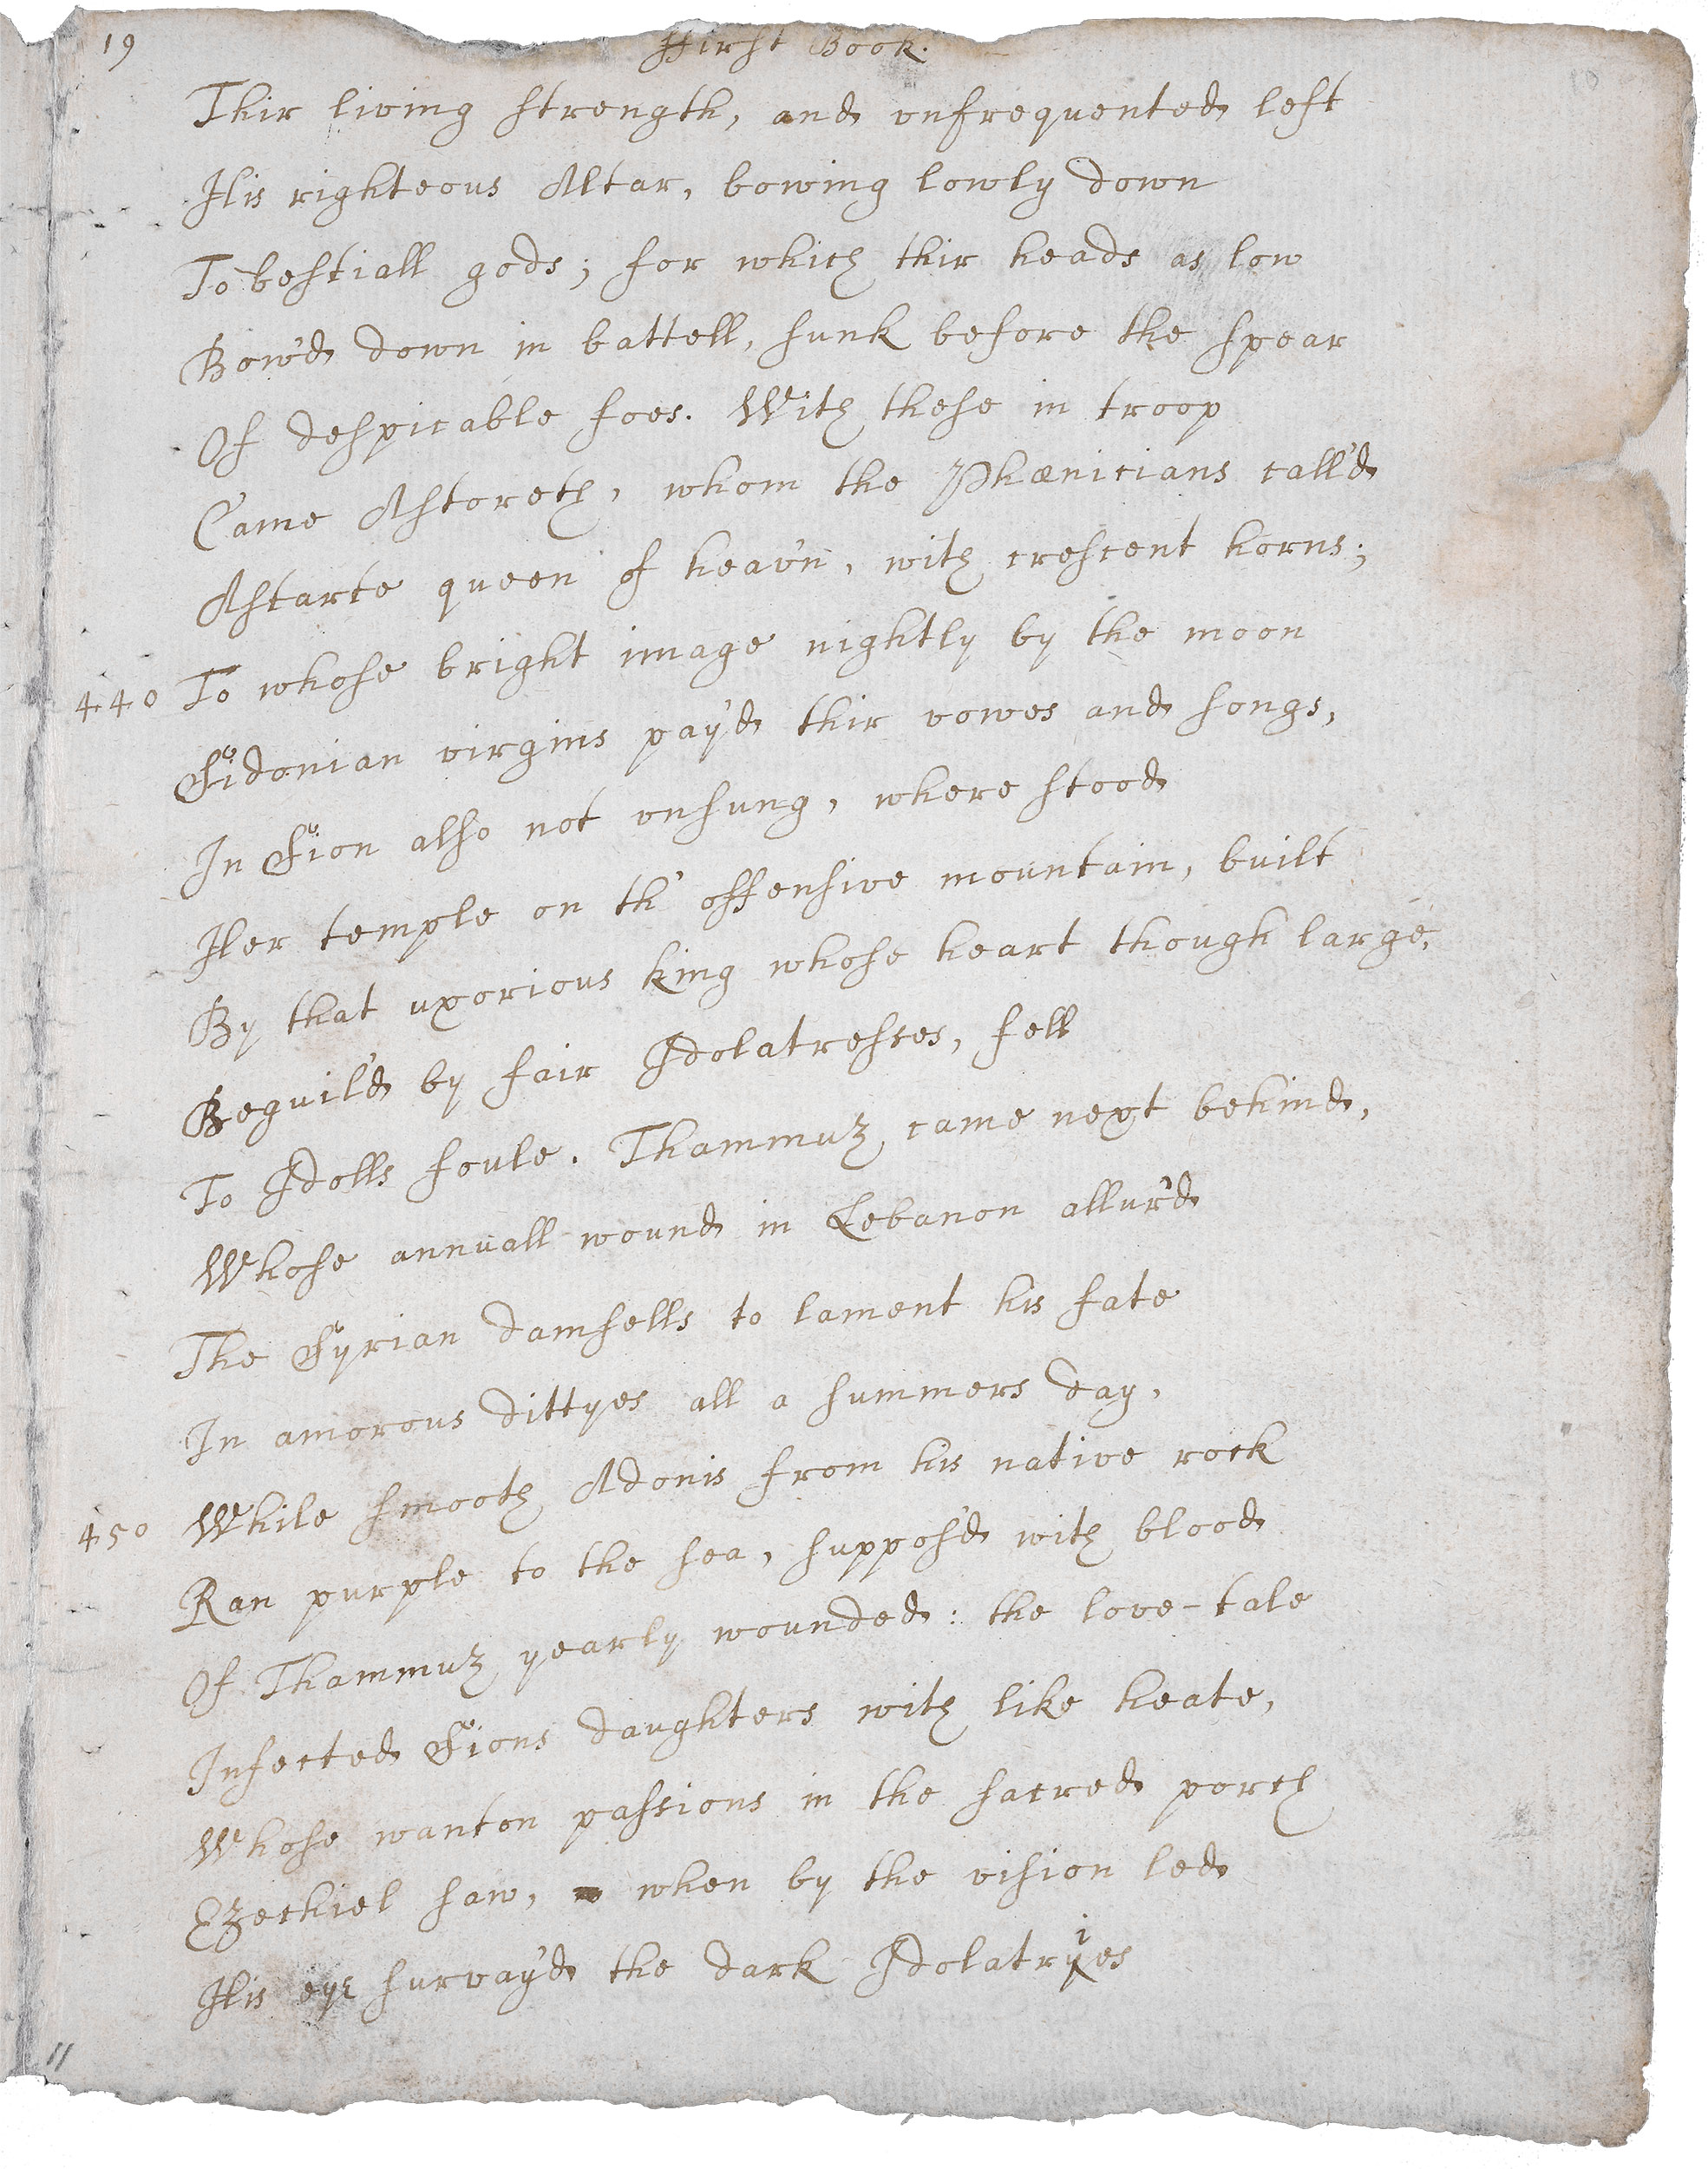 19
ffirst Book.
10
Thir living strength, and vnfrequented left
His righteous Altar, bowing lowly down
To bestiall gods; for which thir heads as low
Bow'd down in battell, sunk before the spear
Of despicable foes. With these in troop
Came Astoreth, whom the Phœnicians call'd
Astarte queen of heav'n, with crescent horns;
440 To whose bright image nightly by the moon
Sidonian virgins pay'd thir vowes and songs,
In Sion also not vnsung, where stood
Her temple on th' offensive mountain, built
By that uxorious king whose heart though large,
Beguil'd by fair Idolatresses, fell
To Idolls foule. Thammuz came next behind,
Whose annuall wound in Lebanon allur'd
The Syrian damsells to lament his fate
In amorous dittyes all a summers day,
450 While smooth Adonis from his native rock
Ran purple to the sea, suppos'd with blood
Of Thammuz yearly wounded: the love-tale
Infected Sions daughters with like heate,
Whose wanton passions in the sacred porch
Ezechiel saw, when by the vision led
His eye survay'd the dark Idolatryies
11